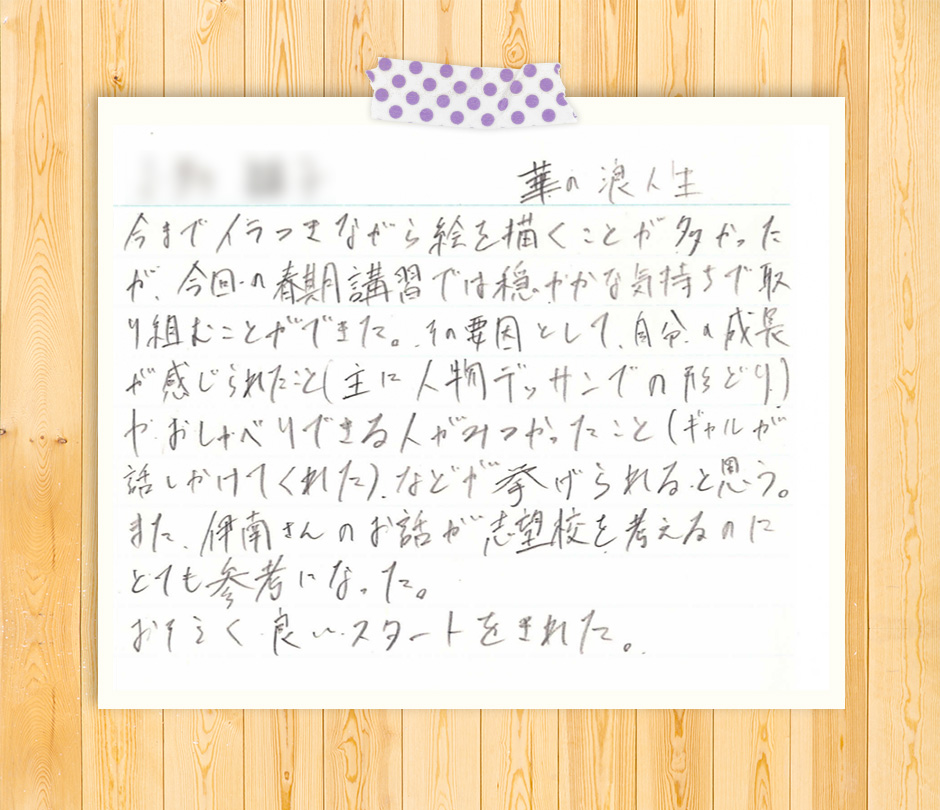 華の浪人生
今までイラつきながら絵を描くことが多かった
が、今回の春期講習では穏やかな気持ちで取
り組むことができた。その要因として、自分の成長
が感じられたこと(主に人物デッサンでの形どり)
や、おしゃべりできる人がみつかったこと(ギャルが
話しかけてくれた)、などが挙げられると思う。
また、伊南さんのお話が志望校を考えるのに
とても参考になった。
おそらく良いスタートをきれた。